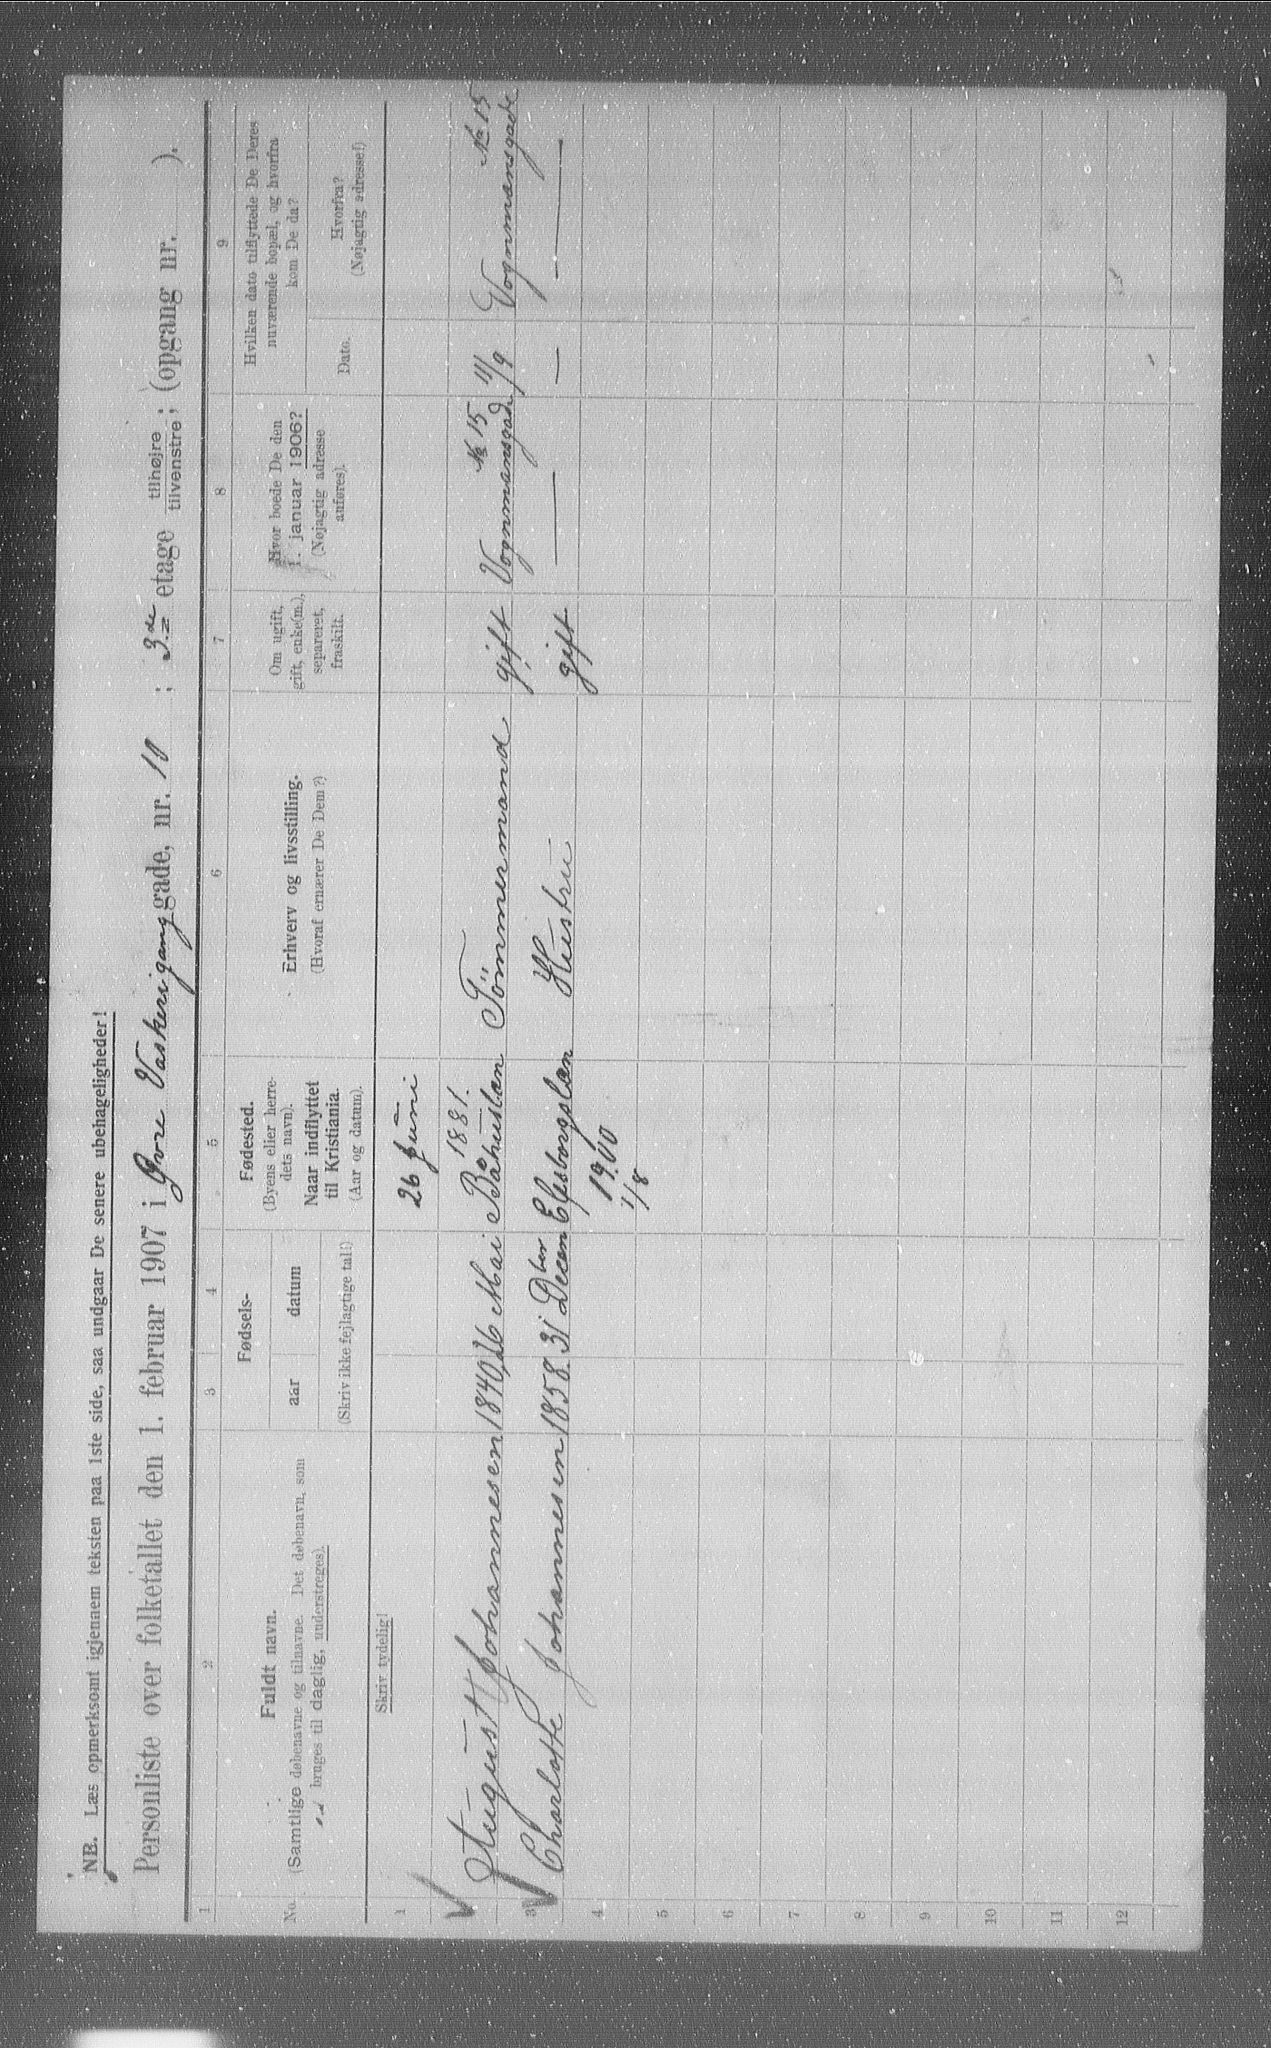 NB. Læs opmerksomt igjennem teksten paa 1ste side, saa undgaar De senere ubehageligheder!
Personliste over folketallet den 1. februar 1907 i Øvre Vaskerigang gade, nr. 10 ; 3de etage tilhøjre tilvenstre ; (opgang nr. ).
1 2 3 4 5 6 7 8 9
No.
Fuldt navn.
(Samtlige døbenavne og tilnavne. Det døbenavn, som
bruges til daglig, understreges).
Fødsels-
aar datum
(Skriv ikke fejlagtige tal!)
Fødested.
(Byens eller herre-
dets navn).
Naar indflyttet
til Kristiania.
(Aar og datum).
Erhverv og livsstilling.
(Hvoraf ernærer De Dem?)
Om ugift,
gift, enke(m.),
separeret,
fraskilt.
Hvor boede De den
1. januar 1906?
(Nøjagtig adresse
anføres).
Hvilken dato tilflyttede De Deres
nuværende bopæl, og hvorfra
kom De da?
Dato.
Hvorfra?
(Nøjagtig adresse!)
Skriv tydelig!
1 26 Juni
1881. № 15 № 15
August Johannesen 1840 26 Mai Båhuslæn Tömmermand gift Vognmansgade 11/9 Vognmansgade
3 Charlotte Johannesen 1858 31 Decem ber Elfsborgslæn Hustru gift — — —
4 1900
1/8
5
6
7
8
9
10
11
12